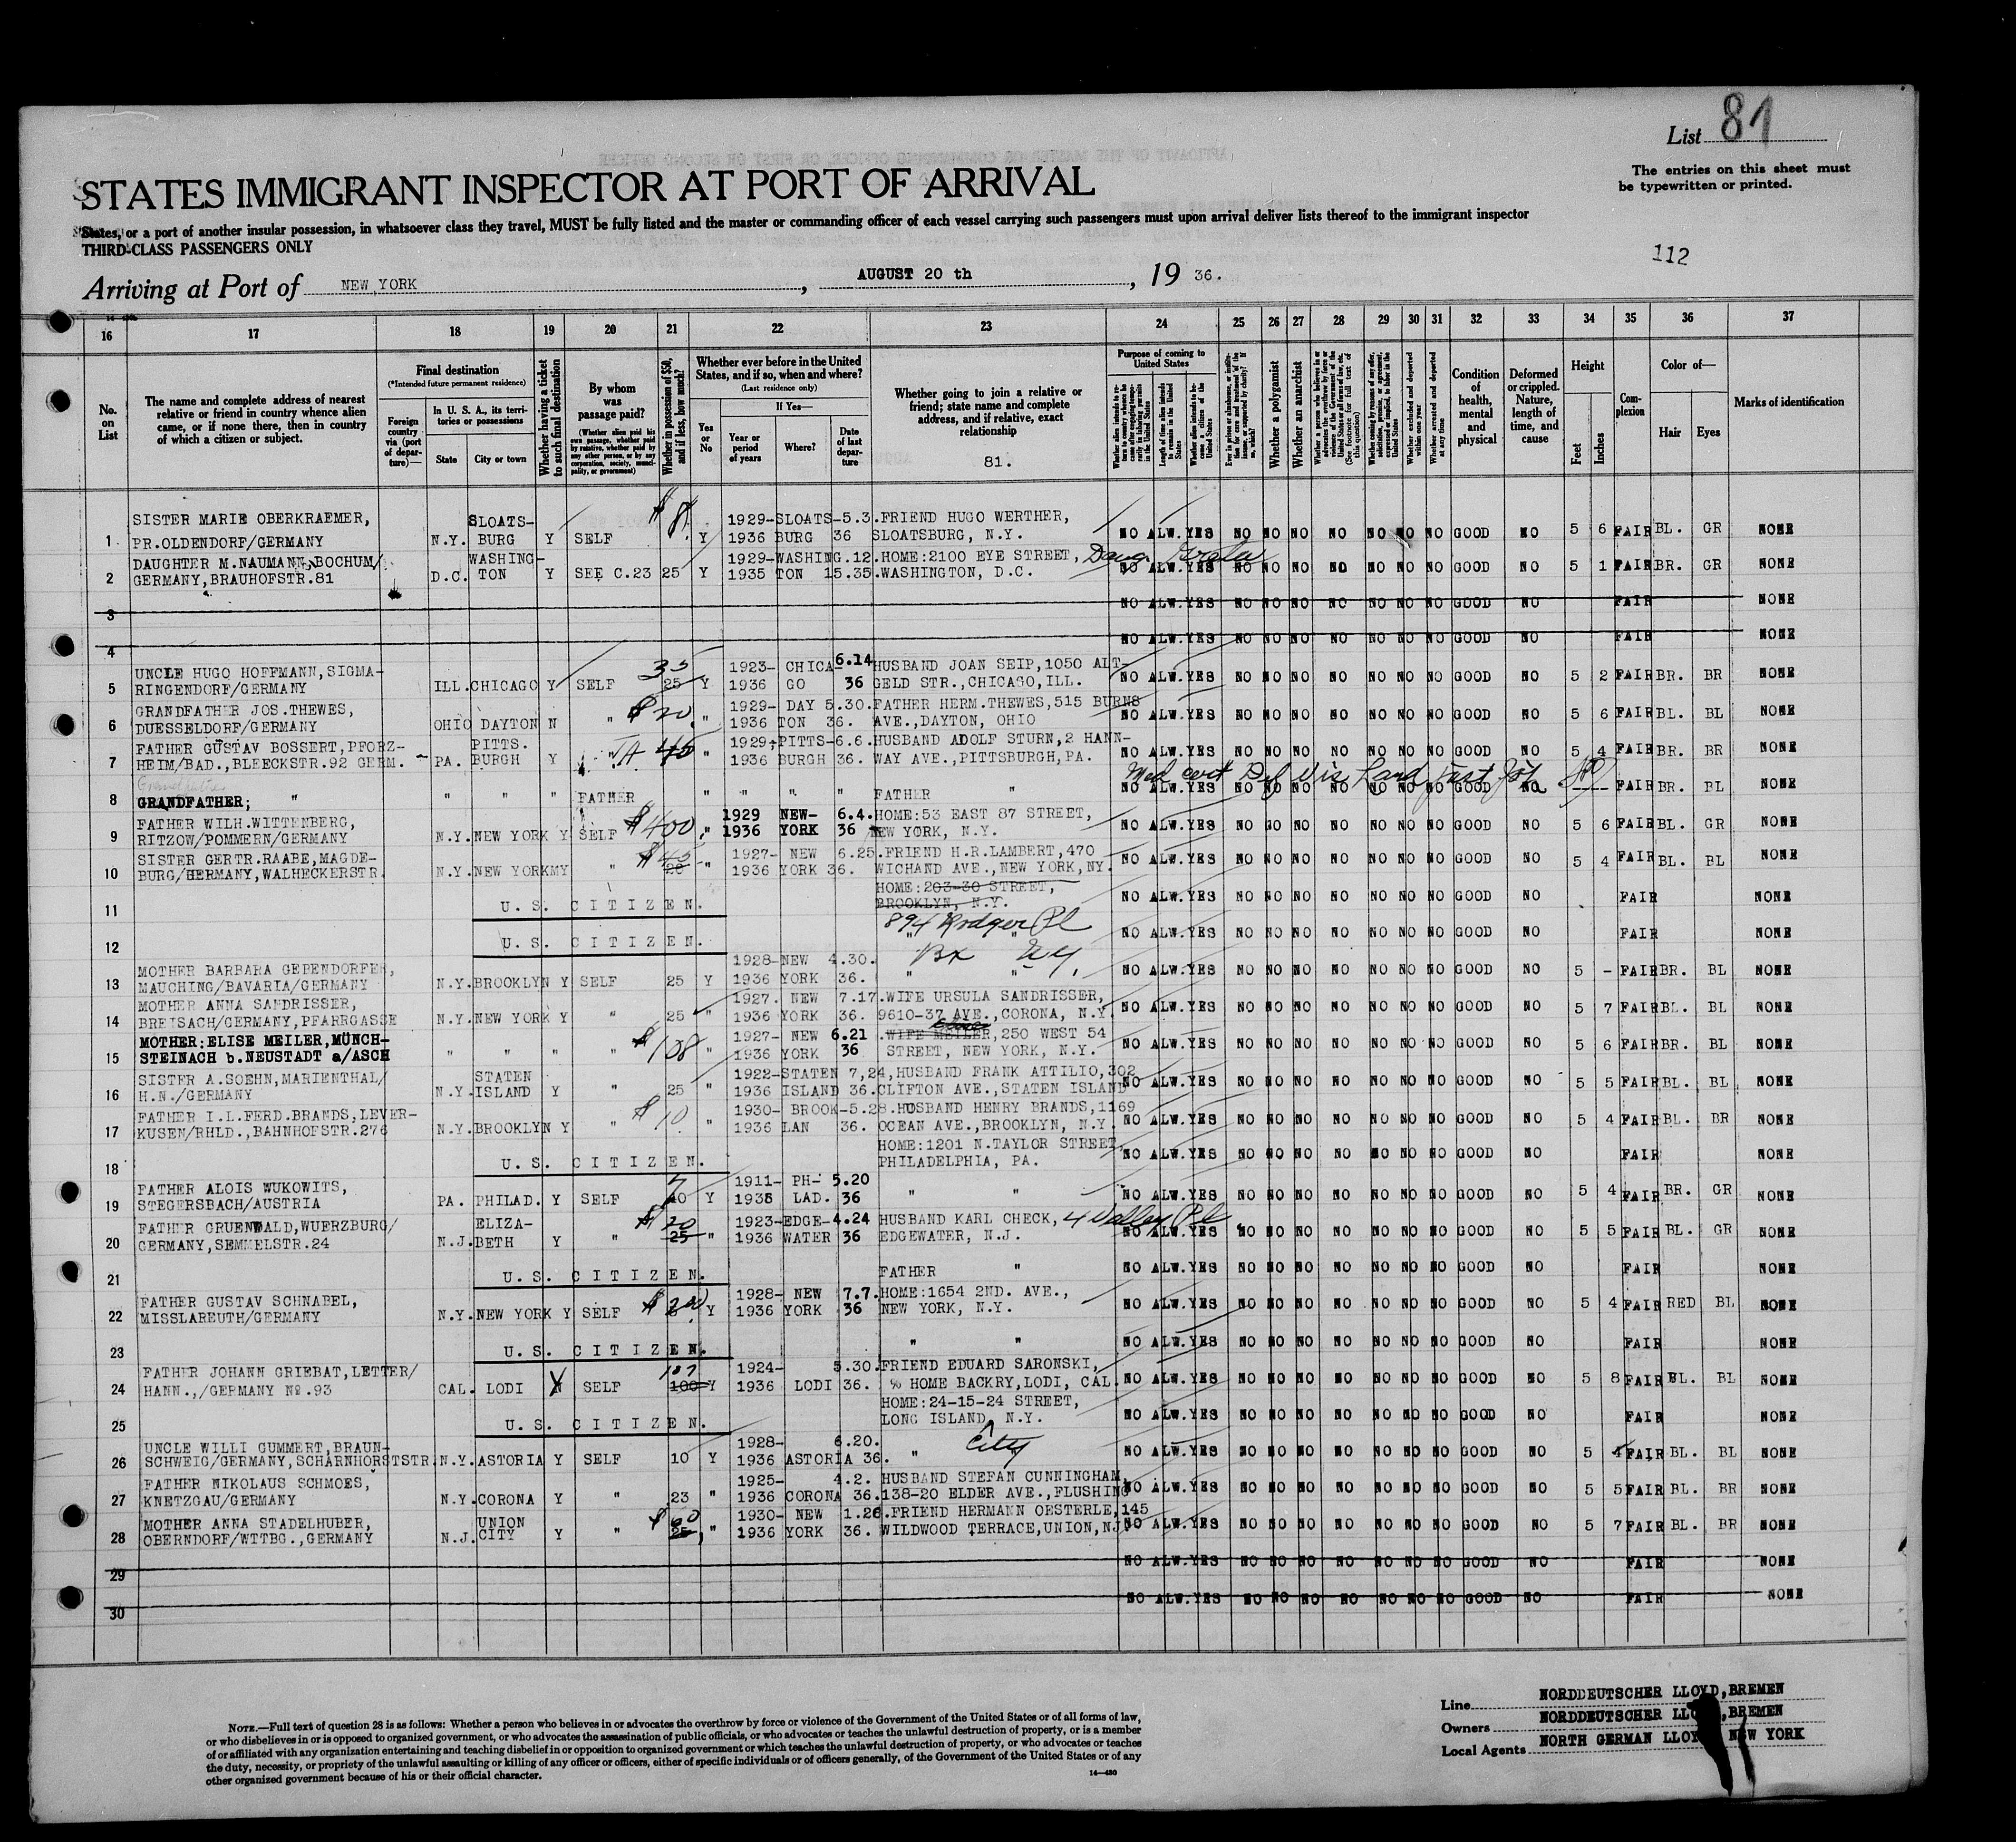 List 81
The entries on this sheet must
be typewritten or printed.
STATES IMMIGRANT INSPECTOR AT PORT OF ARRIVAL
States, or a port of another insular possession, in whatsoever class they travel, MUST be fully listed and the master or commanding officer of each vessel carrying such passengers must upon arrival deliver lists thereof to the immigrant inspector
THIRD-CLASS PASSENGERS ONLY
112
Arriving at Port of NEW YORK, AUGUST 20 th, 19 36.
16 17 18 19 20 21 22 23 24 25 26 27 28 29 30 31 32 33 34 35 36 37
No. on List
The name and complete address of nearest relative or friend in country whence alien came, or if none there, then in country of which a citizen or subject.
Final destination
(*Intended future permanent residence)
Foreign country via (port of departure)—
In U. S. A., its territories or possessions
State City or town
Whether having a ticket to such final destination
By whom was passage paid?
(Whether alien paid his own passage, whether paid by relative, whether paid by any other person, or by any corporation, society, municipality, or government)
Whether in possession of $50, and if less, how much?
Whether ever before in the United States, and if so, when and where?
(Last residence only)
Yes or No
If Yes—
Year or period of years Where? Date of last departure
Whether going to join a relative or friend; state name and complete address, and if relative, exact relationship
81.
Purpose of coming to United States
Whether alien intends to return to country whence he came after engaging temporarily in laboring pursuits in the United States
Length of time alien intends to remain in the United States
Whether alien intends to become a citizen of the United States
Whether a polygamist
Whether an anarchist
(See footnote for full text of this question)
Whether excluded and deported within one year
Whether arrested and deported at any time
Condition of health, mental and physical
Deformed or crippled. Nature, length of time, and cause
Height
Feet Inches
Complexion
Color of—
Hair Eyes
Marks of identification
1 SISTER MARIE OBERKRAEMER, PR.OLDENDORF/GERMANY N.Y. SLOATS-BURG Y SELF $8 Y 1929-1936 SLOATS-BURG 5.3. 36 FRIEND HUGO WERTHER, SLOATSBURG, N.Y. NO ALW. YES NO NO NO NO NO NO NO GOOD NO 5 6 FAIR BL. GR NONE
2 DAUGHTER M.NAUMANN, BOCHUM/GERMANY, BRAUHOFSTR.81 D.C. WASHING-TON Y SEE C.23 25 Y 1929-1935 WASHING.TON 12.15.35. HOME:2100 EYE STREET, WASHINGTON, D.C. NO ALW. YES NO NO NO NO NO NO NO GOOD NO 5 1 FAIR BR. GR NONE
3 NO ALW. YES NO NO NO NO NO NO NO GOOD NO FAIR NONE
4 NO ALW. YES NO NO NO NO NO NO NO GOOD NO FAIR NONE
5 UNCLE HUGO HOFFMANN, SIGMA-RINGENDORF/GERMANY ILL. CHICAGO Y SELF 35 25 Y 1923-1936 CHICA GO 6.14 36 HUSBAND JOAN SEIP, 1050 ALT-GELD STR., CHICAGO, ILL. NO ALW. YES NO NO NO NO NO NO NO GOOD NO 5 2 FAIR BR. BR NONE
6 GRANDFATHER JOS.THEWES, DUESSELDORF/GERMANY OHIO DAYTON N " $20 " 1929-1936 DAY TON 5.30. 36. FATHER HERM.THEWES, 515 BURNS AVE., DAYTON, OHIO NO ALW. YES NO NO NO NO NO NO NO GOOD NO 5 6 FAIR BL. BL NONE
7 FATHER GUSTAV BOSSERT, PFORZ-HEIM/BAD., BLEECKSTR.92 GERM. PA. PITTS. BURGH Y " 45 " 1929-1936 PITTS-BURGH 6.6. 36. HUSBAND ADOLF STURN, 2 HANN-WAY AVE., PITTSBURGH, PA. NO ALW. YES NO NO NO NO NO NO NO GOOD NO 5 4 FAIR BR. BR NONE
Med cert
8 GRANDFATHER; " " " " FATHER " " " " FATHER " NO ALW. YES NO NO NO NO NO NO NO GOOD NO FAIR BR. BL NONE
9 FATHER WILH.WITTENBERG, RITZOW/POMMERN/GERMANY N.Y. NEW YORK Y SELF $400 " 1929 1936 NEW-YORK 6.4. 36 HOME:53 EAST 87 STREET, NEW YORK, N.Y. NO ALW. YES NO GO NO NO NO NO NO GOOD NO 5 6 FAIR BL. GR NONE
10 SISTER GERTR.RAABE, MAGDE-BURG/GERMANY, WALHECKERSTR. N.Y. NEW YORK Y " $45 " 1927-1936 NEW YORK 6.25. 36. FRIEND H.R.LAMBERT, 470 WICHAND AVE., NEW YORK, NY. NO ALW. YES NO NO NO NO NO NO NO GOOD NO 5 4 FAIR BL. BL NONE
11 U.S. CITIZEN. HOME:203-30 STREET, BROOKLYN, N.Y. NO ALW. YES NO NO NO NO NO NO NO GOOD NO FAIR NONE
894 Rodger Pl
12 U.S. CITIZEN. " " NO ALW. YES NO NO NO NO NO NO NO GOOD NO FAIR NONE
Bx N.Y.
13 MOTHER BARBARA GEPENDORFER, MAUCHING/BAVARIA/GERMANY N.Y. BROOKLYN Y SELF 25 Y 1928-1936 NEW YORK 4.30. 36. " " NO ALW. YES NO NO NO NO NO NO NO GOOD NO 5 - FAIR BR. BL NONE
14 MOTHER ANNA SANDRISSER, BREISACH/GERMANY, PFARRGASSE N.Y. NEW YORK Y " 25 " 1927. 1936 NEW YORK 7.17. 36. WIFE URSULA SANDRISSER, 9610-37 AVE., CORONA, N.Y. NO ALW. YES NO NO NO NO NO NO NO GOOD NO 5 7 FAIR BL. BL NONE
15 MOTHER:ELISE MEILER, MÜNCH-STEINACH b.NEUSTADT a/ASCH " " " " $108 " 1927-1936 NEW YORK 6.21 36 WIFE MEILER, 250 WEST 54 STREET, NEW YORK, N.Y. NO ALW. YES NO NO NO NO NO NO NO GOOD NO 5 6 FAIR BR. BL NONE
16 SISTER A.SOEHN, MARIENTHAL/H.N./GERMANY N.Y. STATEN ISLAND Y " 25 " 1922-1936 STATEN ISLAND 7,24, 36. HUSBAND FRANK ATTILIO, 302 CLIFTON AVE., STATEN ISLAND NO ALW. YES NO NO NO NO NO NO NO GOOD NO 5 5 FAIR BL. BL NONE
17 FATHER I.L.FERD.BRANDS, LEVER-KUSEN/RHLD., BAHNHOFSTR.276 N.Y. BROOKLYN Y " $10 " 1930-1936 BROOK-LAN 5.28. 36. HUSBAND HENRY BRANDS, 1169 OCEAN AVE., BROOKLYN, N.Y. NO ALW. YES NO NO NO NO NO NO NO GOOD NO 5 4 FAIR BL. BR NONE
18 U.S. CITIZEN. HOME:1201 N.TAYLOR STREET, PHILADELPHIA, PA. NO ALW. YES NO NO NO NO NO NO NO GOOD NO FAIR NONE
19 FATHER ALOIS WUKOWITS, STEGERSBACH/AUSTRIA PA. PHILAD. Y SELF 7 40 Y 1911-1936 PH-LAD. 5.20 36 " " NO ALW. YES NO NO NO NO NO NO NO GOOD NO 5 4 FAIR BR. GR NONE
20 FATHER GRUENWALD, WUERZBURG/GERMANY, SEMMELSTR.24 N.J. ELIZA-BETH Y " $20 25 " 1923-1936 EDGE-WATER 4.24 36 HUSBAND KARL CHECK, 4 Valley Pl. EDGEWATER, N.J. NO ALW. YES NO NO NO NO NO NO NO GOOD NO 5 5 FAIR BL. GR NONE
21 U.S. CITIZEN. FATHER " NO ALW. YES NO NO NO NO NO NO NO GOOD NO FAIR NONE
22 FATHER GUSTAV SCHNABEL, MISSLAREUTH/GERMANY N.Y. NEW YORK Y SELF $200 Y 1928-1936 NEW YORK 7.7. 36 HOME:1654 2ND. AVE., NEW YORK, N.Y. NO ALW. YES NO NO NO NO NO NO NO GOOD NO 5 4 FAIR RED BL NONE
23 U.S. CITIZEN. " " NO ALW. YES NO NO NO NO NO NO NO GOOD NO FAIR NONE
24 FATHER JOHANN GRIEBAT, LETTER/HANN.,/GERMANY No.93 CAL. LODI N SELF 107 100 Y 1924-1936 LODI 5.30. 36. FRIEND EDUARD SARONSKI, % HOME BACKRY, LODI, CAL. NO ALW. YES NO NO NO NO NO NO NO GOOD NO 5 8 FAIR BL. BL NONE
25 U.S. CITIZEN. HOME:24-15-24 STREET, LONG ISLAND, N.Y. NO ALW. YES NO NO NO NO NO NO NO GOOD NO FAIR NONE
City
26 UNCLE WILLI GUMMERT, BRAUN-SCHWEIG/GERMANY, SCHARNHORSTSTR. N.Y. ASTORIA Y SELF 10 Y 1928-1936 ASTORIA 6.20. 36. " NO ALW. YES NO NO NO NO NO NO NO GOOD NO 5 4 FAIR BL. BL NONE
27 FATHER NIKOLAUS SCHMOES, KNETZGAU/GERMANY N.Y. CORONA Y " 23 " 1925-1936 CORONA 4.2. 36. HUSBAND STEFAN CUNNINGHAM, 138-20 ELDER AVE., FLUSHING NO ALW. YES NO NO NO NO NO NO NO GOOD NO 5 5 FAIR BL. BR NONE
28 MOTHER ANNA STADELHUBER, OBERNDORF/WTTBG., GERMANY N.J. UNION CITY Y " $60 25 " 1930-1936 NEW YORK 1.26. 36. FRIEND HERMANN OESTERLE, 145 WILDWOOD TERRACE, UNION, NJ. NO ALW. YES NO NO NO NO NO NO NO GOOD NO 5 7 FAIR BL. BR NONE
29 NO ALW. YES NO NO NO NO NO NO NO GOOD NO FAIR NONE
30 NO ALW. YES NO NO NO NO NO NO NO GOOD NO FAIR NONE
NOTE.—Full text of question 28 is as follows: Whether a person who believes in or advocates the overthrow by force or violence of the Government of the United States or of all forms of law,
or who disbelieves in or is opposed to organized government, or who advocates the assassination of public officials, or who advocates or teaches the unlawful destruction of property, or is a member
of or affiliated with any organization entertaining and teaching disbelief in or opposition to organized government or which teaches the unlawful destruction of property, or who advocates or teaches
the duty, necessity, or propriety of the unlawful assaulting or killing of any officer or officers, either of specific individuals or of officers generally, of the Government of the United States or of any
other organized government because of his or their official character.
14—480
Line NORDDEUTSCHER LLOYD, BREMEN
Owners NORDDEUTSCHER LLOYD, BREMEN
Local Agents NORTH GERMAN LLOYD, NEW YORK